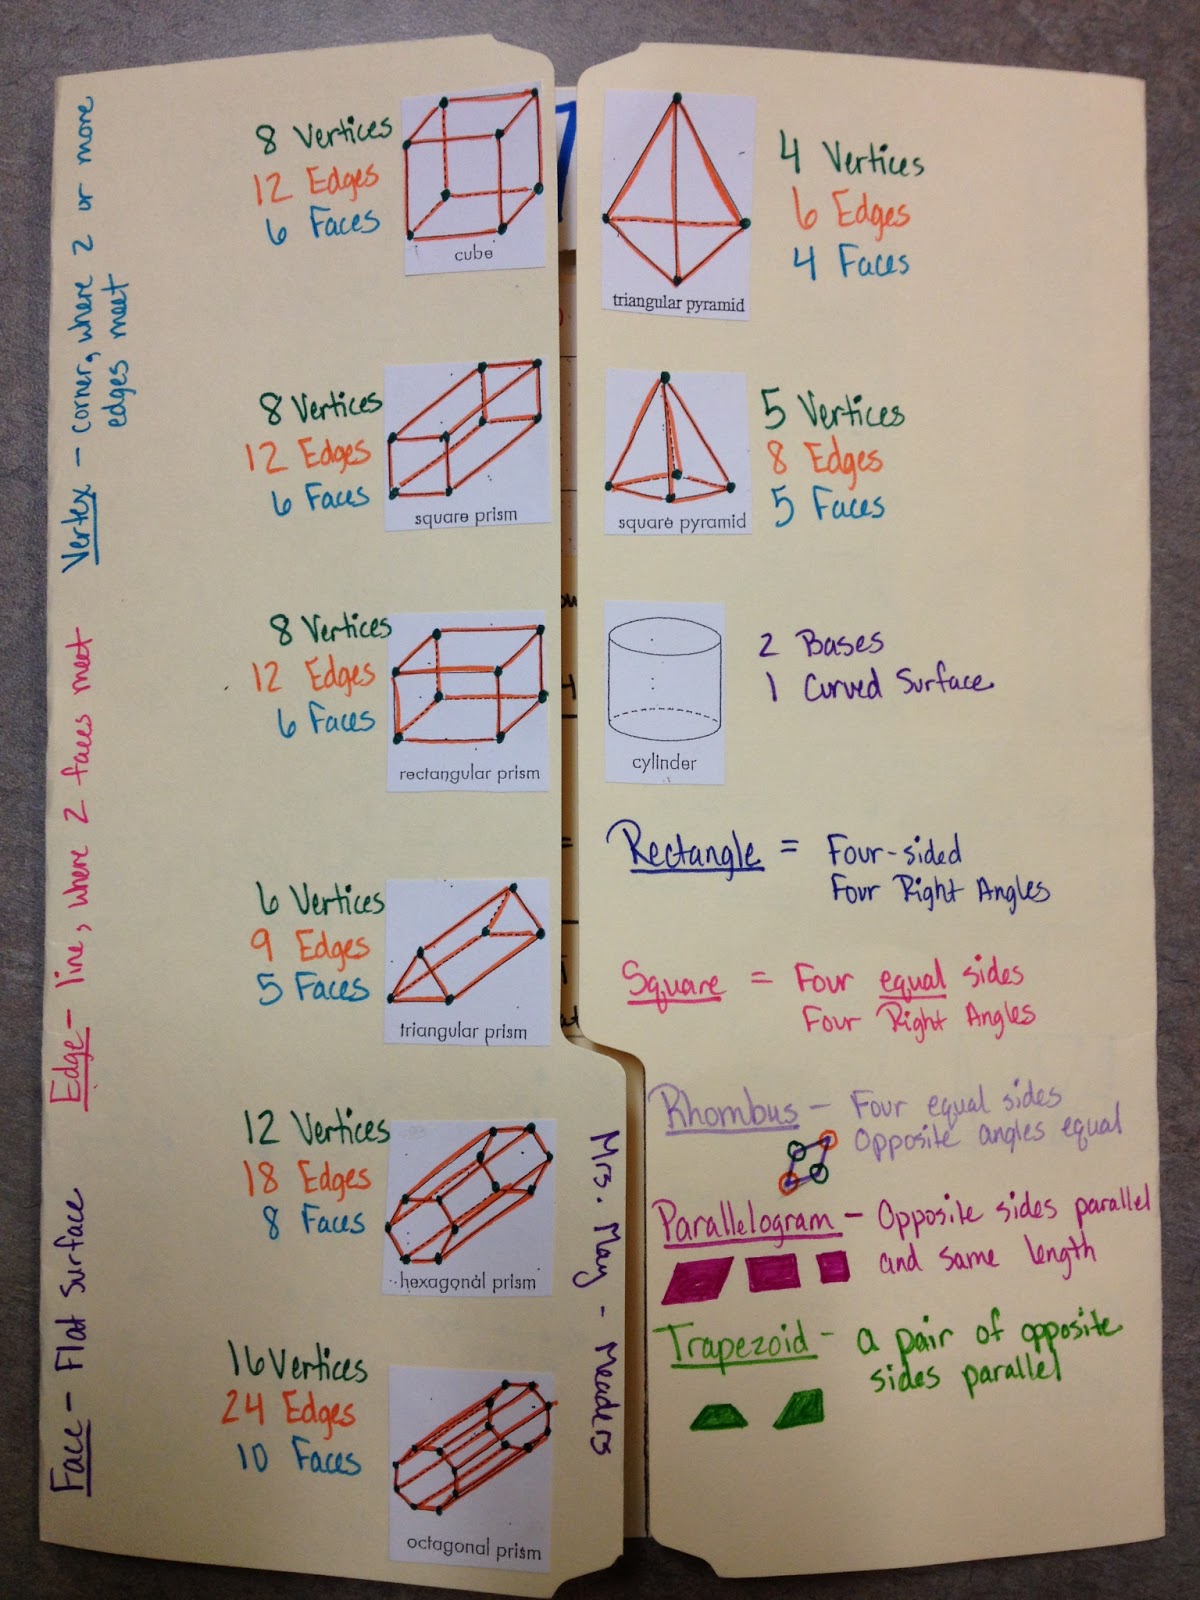 Vertex - corner, where 2 or more
edges meet
Edge - line, where 2 faces meet
Face - Flat Surface
8 Vertices
12 Edges
6 Faces
cube
8 Vertices
12 Edges
6 Faces
square prism
8 Vertices
12 Edges
6 Faces
rectangular prism
6 Vertices
9 Edges
5 Faces
triangular prism
12 Vertices
18 Edges
8 Faces
hexagonal prism
16 Vertices
24 Edges
10 Faces
octagonal prism
Mrs. May - Meaders
4 Vertices
6 Edges
4 Faces
triangular pyramid
5 Vertices
8 Edges
5 Faces
square pyramid
2 Bases
1 Curved Surface
cylinder
Rectangle = Four-sided
Four Right Angles
Square = Four equal sides
Four Right Angles
Rhombus - Four equal sides
Opposite angles equal
Parallelogram - Opposite sides parallel
and same length
Trapezoid - a pair of opposite
sides parallel